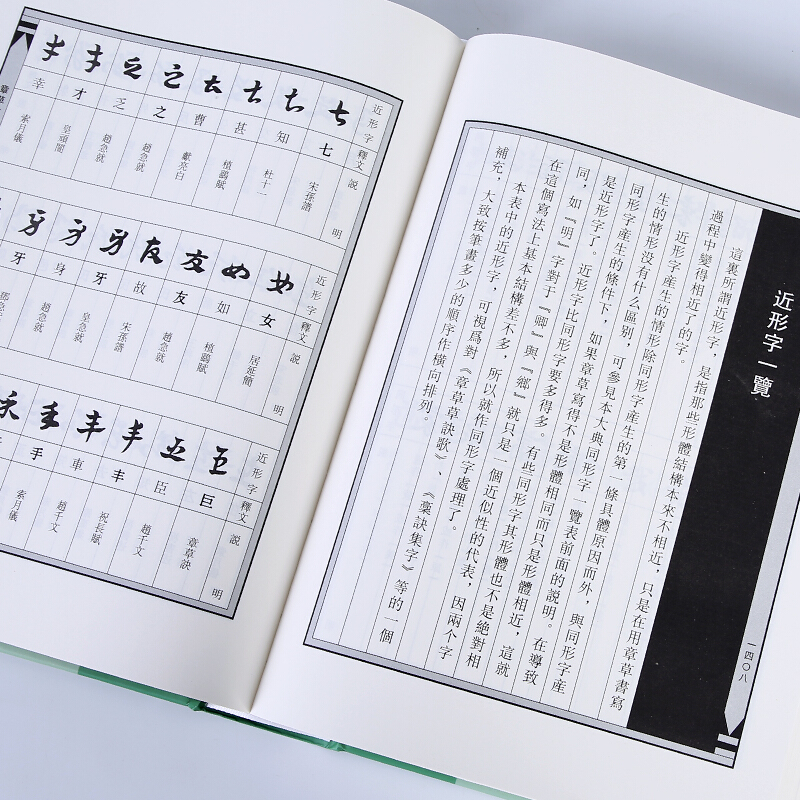 近形字一覽
一四〇八
這裏所謂近形字，是指那些形體結構本來不相近，只是在用章草書寫
過程中變得相近了的字。
近形字産生的情形除同形字産生的第一條具體原因而外，與同形字産
生的情形没有什么區别，可參見本大典同形字一覽表前面的説明。在導致
同形字産生的條件下，如果章草寫得不是形體相同而只是形體相近，這就
是近形字了。近形字比同形字要多得多。有些同形字其形體也不是絶對相
同，如『明』字對于『卿』與『鄉』就只是一個近似性的代表，因兩个字
在這個寫法上基本結構差不多，所以就作同形字處理了。
本表中的近形字，可視爲對《章草草訣歌》、《稾訣集字》等的一個
補充，大致按筆畫多少的順序作横向排列。
近形字 釋文 説明
七 宋孫譜
知 杜十一
甚 植鷂賦
曹 戴亮白
之 趙急就
乏 趙急就
才 皇頭闇
幸 索月儀
近形字 釋文 説明
女 居延簡
如 植鷂賦
友 趙急就
故 宋孫譜
牙 皇急就
身 趙急就
牙 鄧急就
近形字 釋文 説明
巨 章草訣
臣 趙千文
丰 祝長賦
車 趙千文
手 索月儀